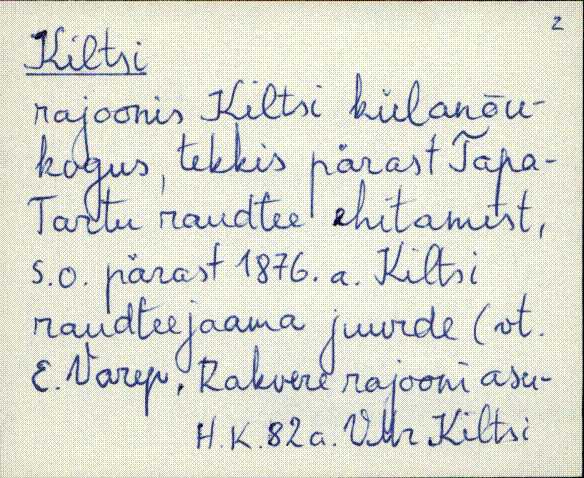 2
Kiltsi
rajoonis Kiltsi külanõu-
kogus, tekkis pärast Tapa-
Tartu raudtee ehitamist,
s.o. pärast 1876. a. Kiltsi
raudteejaama juurde (vt.
E. Varep, Rakvere rajooni asu-
H.K. 82 a. VMr Kiltsi